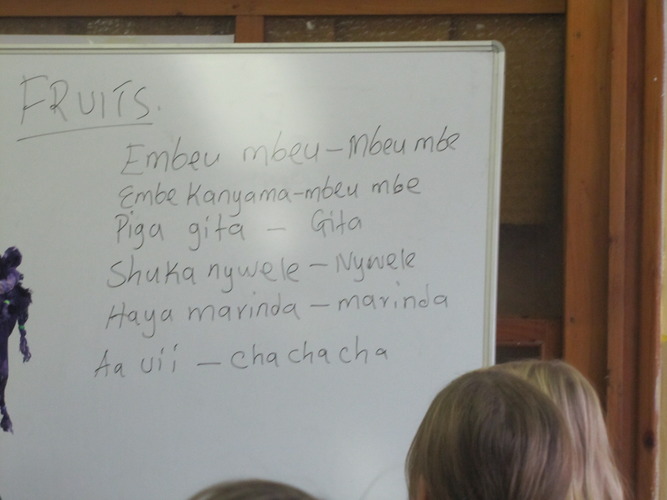 FRUITS.
Embeu mbeu – Mbeu mbe
Embe Kanyama – mbeu mbe
Piga gita – Gita
Shuka nywele – Nywele
Haya marinda – marinda
Aa uii – cha cha cha